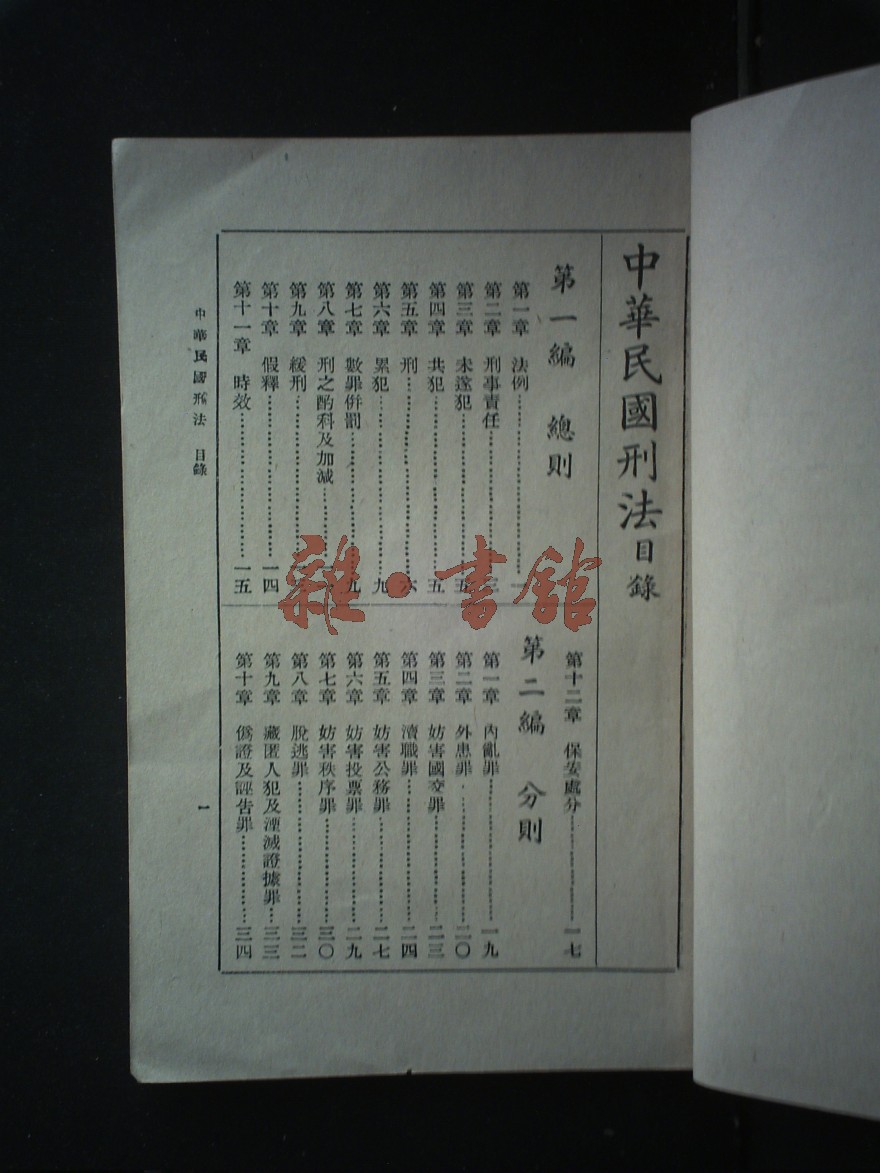 中華民國刑法目錄
第一編 總則
第一章 法例……一
第二章 刑事責任……三
第三章 未遂犯……五
第四章 共犯……五
第五章 刑……六
第六章 累犯……九
第七章 數罪併罰……九
第八章 刑之酌科及加減……
第九章 緩刑……
第十章 假釋……一四
第十一章 時效……一五
第十二章 保安處分……一七
第二編 分則
第一章 內亂罪……一九
第二章 外患罪……二〇
第三章 妨害國交罪……二三
第四章 瀆職罪……二四
第五章 妨害公務罪……二七
第六章 妨害投票罪……二九
第七章 妨害秩序罪……三〇
第八章 脫逃罪……三二
第九章 藏匿人犯及湮滅證據罪……三三
第十章 僞證及誣告罪……三四
中華民國刑法 目錄
一
雜·書館